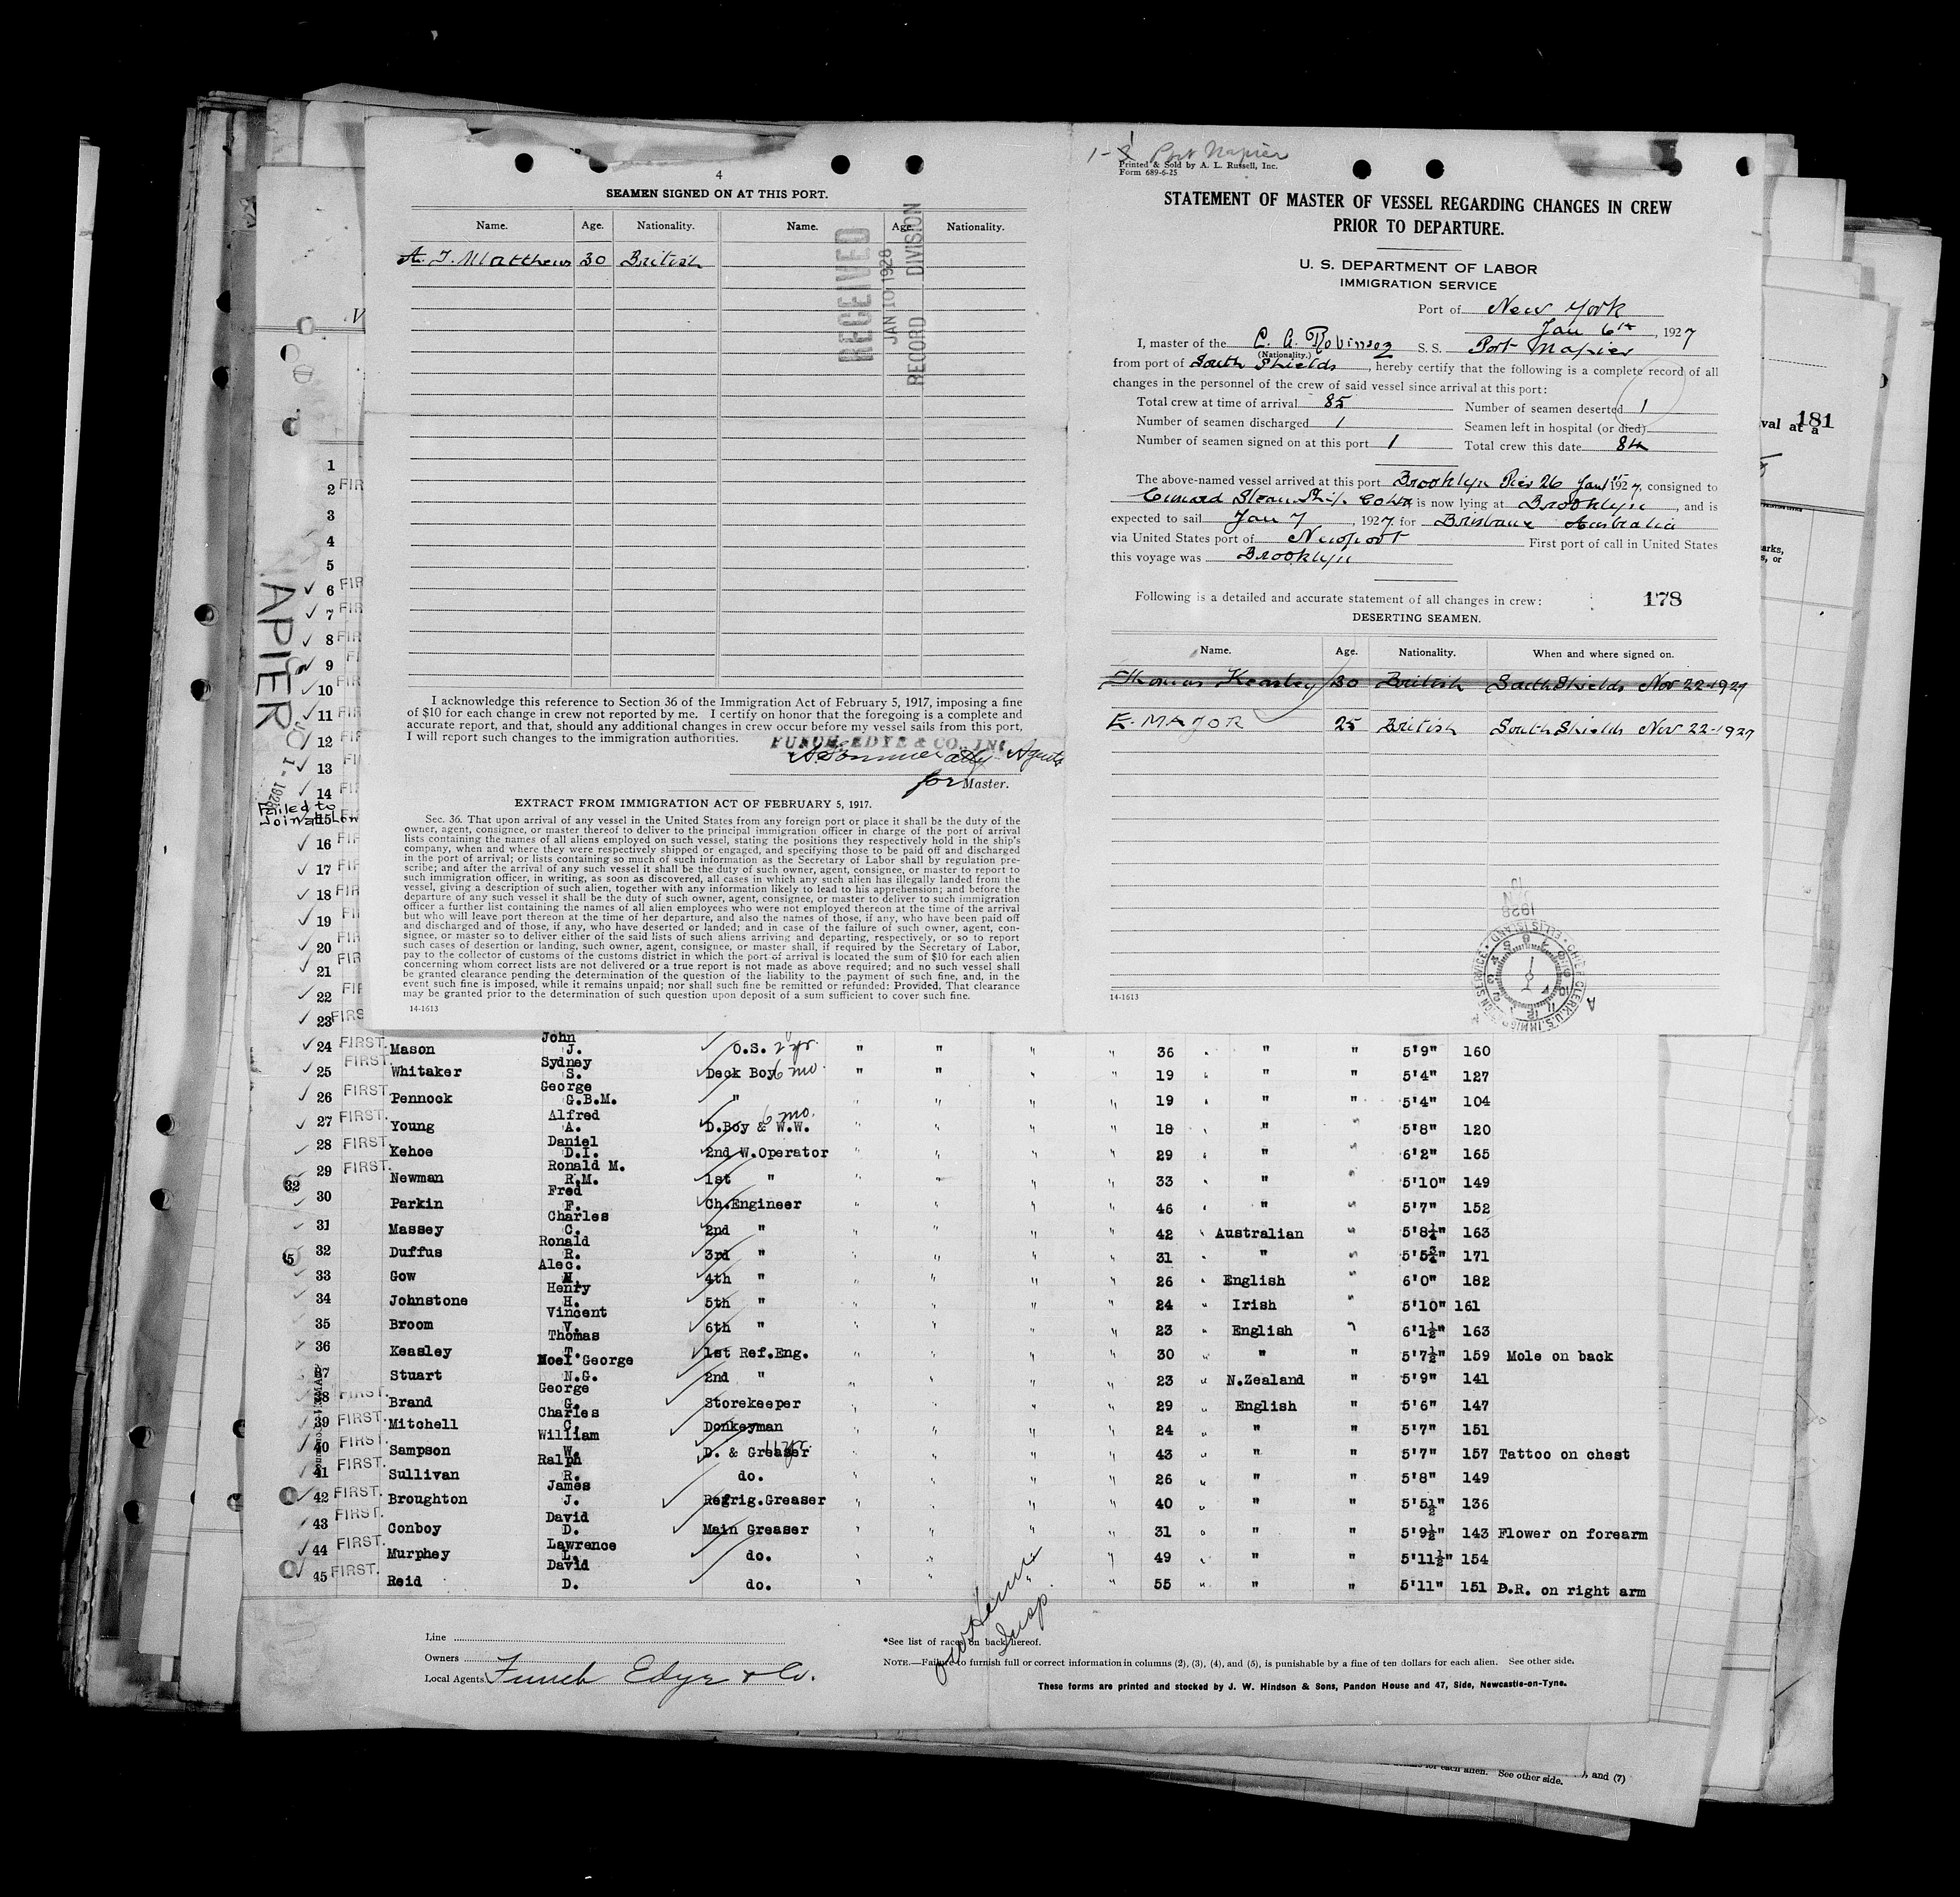 4
SEAMEN SIGNED ON AT THIS PORT.
Name. Age. Nationality. Name. Age. Nationality.
A. J. Matthews 30 British
RECEIVED
JAN 10 1928
RECORD DIVISION
I acknowledge this reference to Section 36 of the Immigration Act of February 5, 1917, imposing a fine
of $10 for each change in crew not reported by me. I certify on honor that the foregoing is a complete and
accurate report, and that, should any additional changes in crew occur before my vessel sails from this port,
I will report such changes to the immigration authorities.
FUNCH, EDYE & CO., INC.
Agents
for Master.
EXTRACT FROM IMMIGRATION ACT OF FEBRUARY 5, 1917.
Sec. 36. That upon arrival of any vessel in the United States from any foreign port or place it shall be the duty of the
owner, agent, consignee, or master thereof to deliver to the principal immigration officer in charge of the port of arrival
lists containing the names of all aliens employed on such vessel, stating the positions they respectively hold in the ship's
company, when and where they were respectively shipped or engaged, and specifying those to be paid off and discharged
in the port of arrival; or lists containing so much of such information as the Secretary of Labor shall by regulation pre-
scribe; and after the arrival of any such vessel it shall be the duty of such owner, agent, consignee, or master to report to
such immigration officer, in writing, as soon as discovered, all cases in which any such alien has illegally landed from the
vessel, giving a description of such alien, together with any information likely to lead to his apprehension; and before the
departure of any such vessel it shall be the duty of such owner, agent, consignee, or master to deliver to such immigration
officer a further list containing the names of all alien employees who were not employed thereon at the time of the arrival
but who will leave port thereon at the time of her departure, and also the names of those, if any, who have been paid off
and discharged and of those, if any, who have deserted or landed; and in case of the failure of such owner, agent, con-
signee, or master so to deliver either of the said lists of such aliens arriving and departing, respectively, or so to report
such cases of desertion or landing, such owner, agent, consignee, or master shall, if required by the Secretary of Labor,
pay to the collector of customs of the customs district in which the port of arrival is located the sum of $10 for each alien
concerning whom correct lists are not delivered or a true report is not made as above required; and no such vessel shall
be granted clearance pending the determination of the question of the liability to the payment of such fine, and, in the
event such fine is imposed, while it remains unpaid; nor shall such fine be remitted or refunded: Provided, That clearance
may be granted prior to the determination of such question upon deposit of a sum sufficient to cover such fine.
14-1613
Port Napier
Printed & Sold by A. L. Russell, Inc.
Form 689-6-25
STATEMENT OF MASTER OF VESSEL REGARDING CHANGES IN CREW
PRIOR TO DEPARTURE.
U. S. DEPARTMENT OF LABOR
IMMIGRATION SERVICE
Port of New York
Jan 6th, 1927
I, master of the C. A. Robinson S. S. Port Napier
(Nationality.)
from port of South Shields, hereby certify that the following is a complete record of all
changes in the personnel of the crew of said vessel since arrival at this port:
Total crew at time of arrival 85 Number of seamen deserted 1
Number of seamen discharged 1 Seamen left in hospital (or died)
Number of seamen signed on at this port 1 Total crew this date 84
The above-named vessel arrived at this port Brooklyn Pier 26 Jan 1st 1927, consigned to
Cunard Steam Ship Co Ltd is now lying at Brooklyn, and is
expected to sail Jan 7, 1927 for Brisbane Australia
via United States port of Newport First port of call in United States
this voyage was Brooklyn
Following is a detailed and accurate statement of all changes in crew: 178
DESERTING SEAMEN.
Name. Age. Nationality. When and where signed on.
Thomas Keasley 30 British South Shields Nov 22-1927
E. MAJOR 25 British South Shields Nov 22-1927
14-1613
CHIEF CLERK, U.S. IMMIGRATION SERVICE ELLIS ISLAND
JAN 10 1928
181
val at a
APIER
Failed to
1
2 FIR
3
4
5
6 FIR
7 FIR
8 FIR
9 FI
10 FIR
11 FIR
12 FIR
13 FI
14 FI
15
16 FIR
17 FIR
18 FIR
19 FI
20 FIR
21 FIR
22 FI
23 FIRS
24 FIRST. Mason John J. O.S. 2 yr. " " " " 36 " " 5'9" 160
25 FIRST. Whitaker Sydney S. Deck Boy 6 mo. " " " " 19 " " 5'4" 127
26 FIRST. Pennock George G.B.M. " " " " " 19 " " 5'4" 104
27 FIRST. Young Alfred A. D.Boy & W.W. 6 mo. " " " " 18 " " 5'8" 120
28 FIRST. Kehoe Daniel D.I. 2nd W.Operator " " " " 29 " " 6'2" 165
29 FIRST. Newman Ronald M. R.M. 1st " " " " " 33 " " 5'10" 149
30 Parkin Fred F. Ch.Engineer " " " " 46 " " 5'7" 152
31 Massey Charles C. 2nd " " " " " 42 Australian " 5'8¼" 163
32 Duffus Ronald R. 3rd " " " " " 31 " " 5'5¾" 171
33 Gow Alec. 4th " " " " " 26 English " 6'0" 182
34 Johnstone Henry H. 5th " " " " " 24 Irish " 5'10" 161
35 Broom Vincent V. 6th " " " " " 23 English " 6'1½" 163
36 Keasley Thomas T. 1st Ref.Eng. " " " " 30 " " 5'7½" 159 Mole on back
37 Stuart Noel George N.G. 2nd " " " " " 23 N.Zealand " 5'9" 141
38 FIRST. Brand George G. Storekeeper " " " " 29 English " 5'6" 147
39 FIRST. Mitchell Charles C. Donkeyman " " " " 24 " " 5'7" 151
40 FIRST. Sampson William W. D. & Greaser " " " " 43 " " 5'7" 157 Tattoo on chest
41 FIRST. Sullivan Ralph R. do. " " " " 26 " " 5'8" 149
42 FIRST. Broughton James J. Refrig.Greaser " " " " 40 " " 5'5½" 136
43 FIRST. Conboy David D. Main Greaser " " " " 31 " " 5'9½" 143 Flower on forearm
44 FIRST. Murphey Lawrence L. do. " " " " 49 " " 5'11½" 154
45 FIRST. Reid David D. do. " " " " 55 " " 5'11" 151 D.R. on right arm
Line
Owners
Local Agents Funch Edye & Co.
Insp.
*See list of races on back hereof.
NOTE.—Failure to furnish full or correct information in columns (2), (3), (4), and (5), is punishable by a fine of ten dollars for each alien. See other side.
These forms are printed and stocked by J. W. Hindson & Sons, Pandon House and 47, Side, Newcastle-on-Tyne.
each alien. See other side. ), and (7)